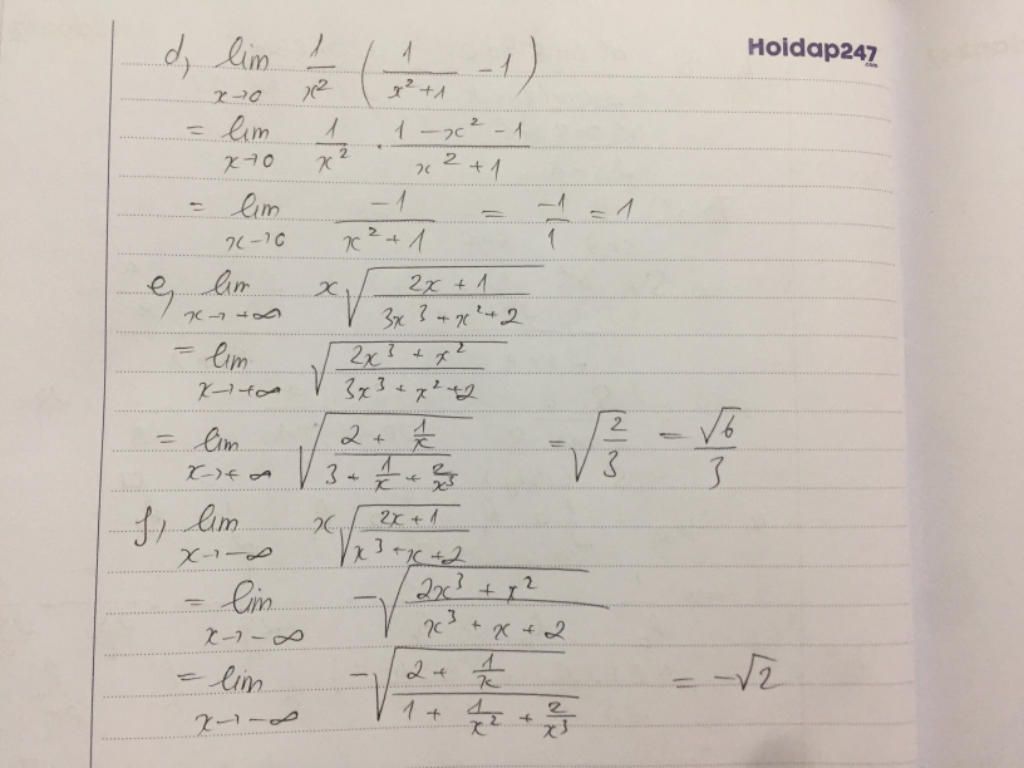 Hoidap247
.com
d, lim x→0 1/x² (1/(x²+1) - 1)
= lim x→0 1/x² . (1-x²-1)/(x²+1)
= lim x→0 -1/(x²+1) = -1/1 = 1
e, lim x→+∞ x√((2x+1)/(3x³+x²+2))
= lim x→+∞ √((2x³+x²)/(3x³+x²+2))
= lim x→+∞ √((2+1/x)/(3+1/x+2/x³)) = √(2/3) = √6/3
f, lim x→-∞ x√((2x+1)/(x³+x+2))
= lim x→-∞ -√((2x³+x²)/(x³+x+2))
= lim x→-∞ -√((2+1/x)/(1+1/x²+2/x³)) = -√2